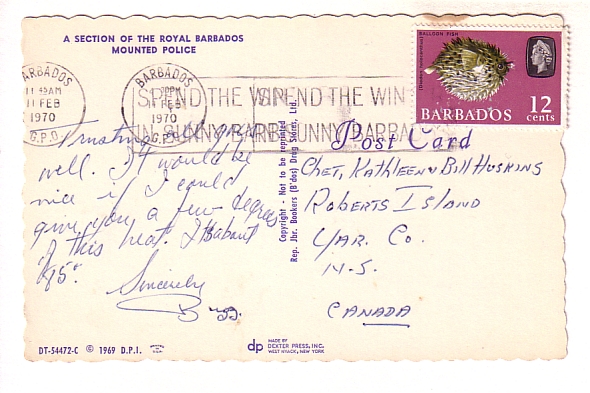 A SECTION OF THE ROYAL BARBADOS
MOUNTED POLICE
BARBADOS
11 49AM
11 FEB
1970
G.P.O.
BARBADOS
PM
FEB
1970
G.P.O.
SPEND THE WIN
IN SUNNY BARB
SPEND THE WIN
SUNNY BARBA
BALLOON FISH
BARBADOS 12
cents
Trusting all goes
well. It would be
nice if I could
give you a few degrees
of this heat. It's about
85°.
Sincerely
B
Copyright - Not to be reprinted
Rep. Jbr. Bookers (B'dos) Drug Stores, Ltd.
Post Card
Chet, Kathleen & Bill Huskins
Roberts Island
Yar. Co.
N.S.
CANADA
DT-54472-C © 1969 D.P.I.
dp MADE BY
DEXTER PRESS, INC.
WEST NYACK, NEW YORK